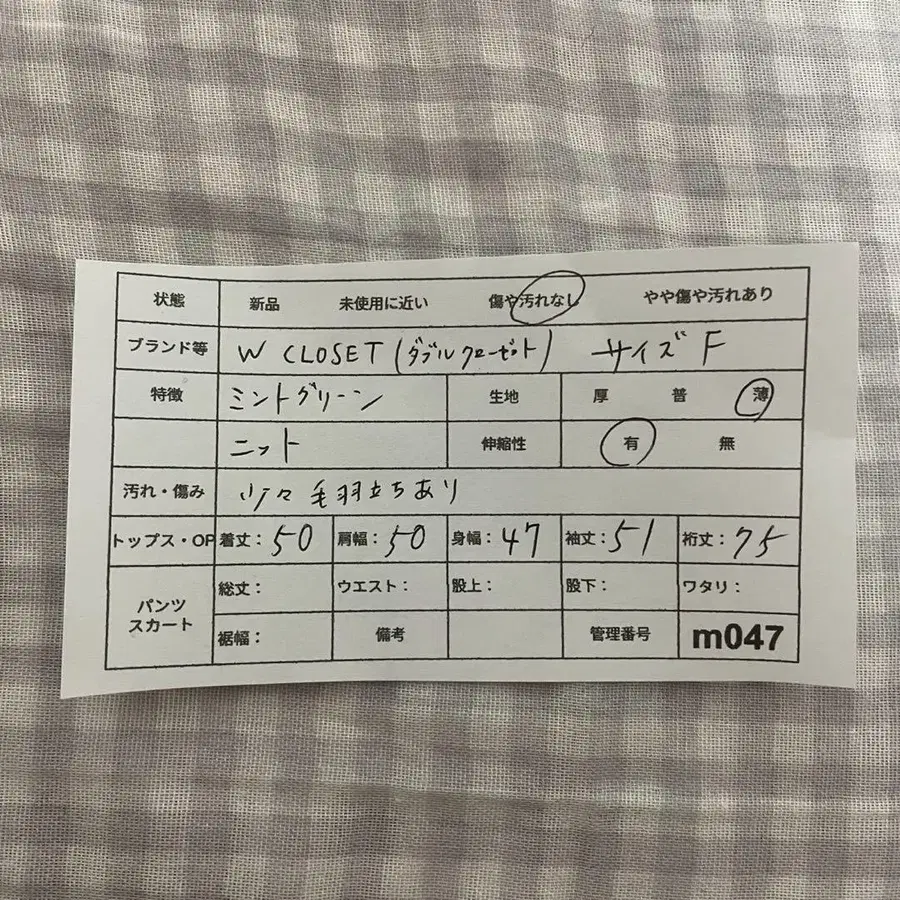 状態 新品 未使用に近い 傷や汚れなし やや傷や汚れあり
ブランド等 W CLOSET (ダブルクローゼット) サイズ F
特徴 ミントグリーン 生地 厚 普 薄
ニット 伸縮性 有 無
汚れ・傷み 少々毛羽立ちあり
トップス・OP 着丈:50 肩幅:50 身幅:47 袖丈:51 裄丈:75
パンツ スカート 総丈: ウエスト: 股上: 股下: ワタリ:
裾幅: 備考 管理番号 m047